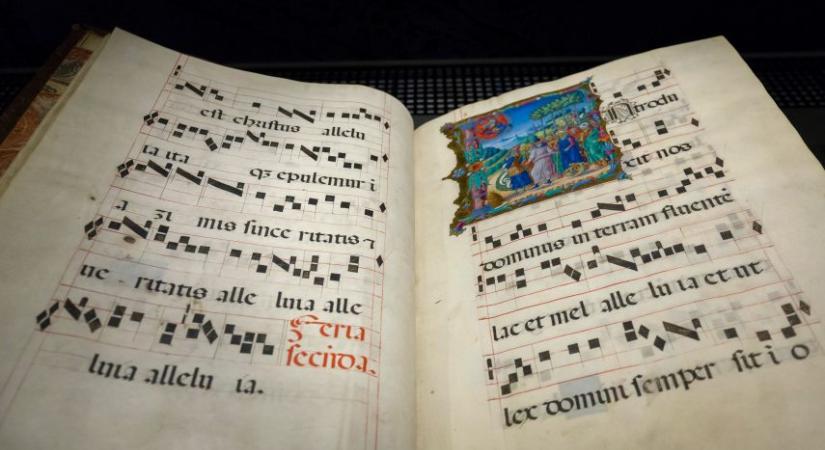 est christus allelu
ia ita qz epulemur i
a zi mis since ritatis ⁊
ue ritatis alle luia alle
Feria
secūda.
luia allelu ia.
Ntrodu
xit nos
dominus in terram fluentē
lac et mel alle lu ia et ut
lex domini semper sit i o